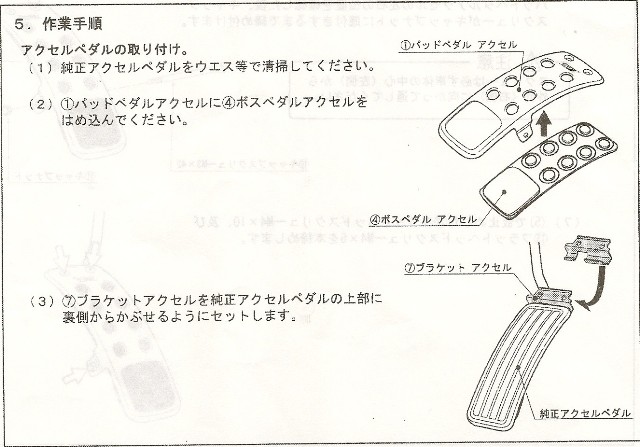 5. 作業手順
アクセルペダルの取り付け。
(1) 純正アクセルペダルをウエス等で清掃してください。
(2) ①パッドペダルアクセルに④ボスペダルアクセルを
はめ込んでください。
①パッドペダル アクセル
④ボスペダル アクセル
(3) ⑦ブラケットアクセルを純正アクセルペダルの上部に
裏側からかぶせるようにセットします。
⑦ブラケット アクセル
純正アクセルペダル